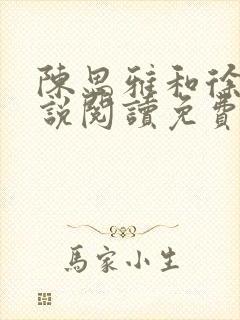 陳思雅和徐
說閱讀免費
馬家小生